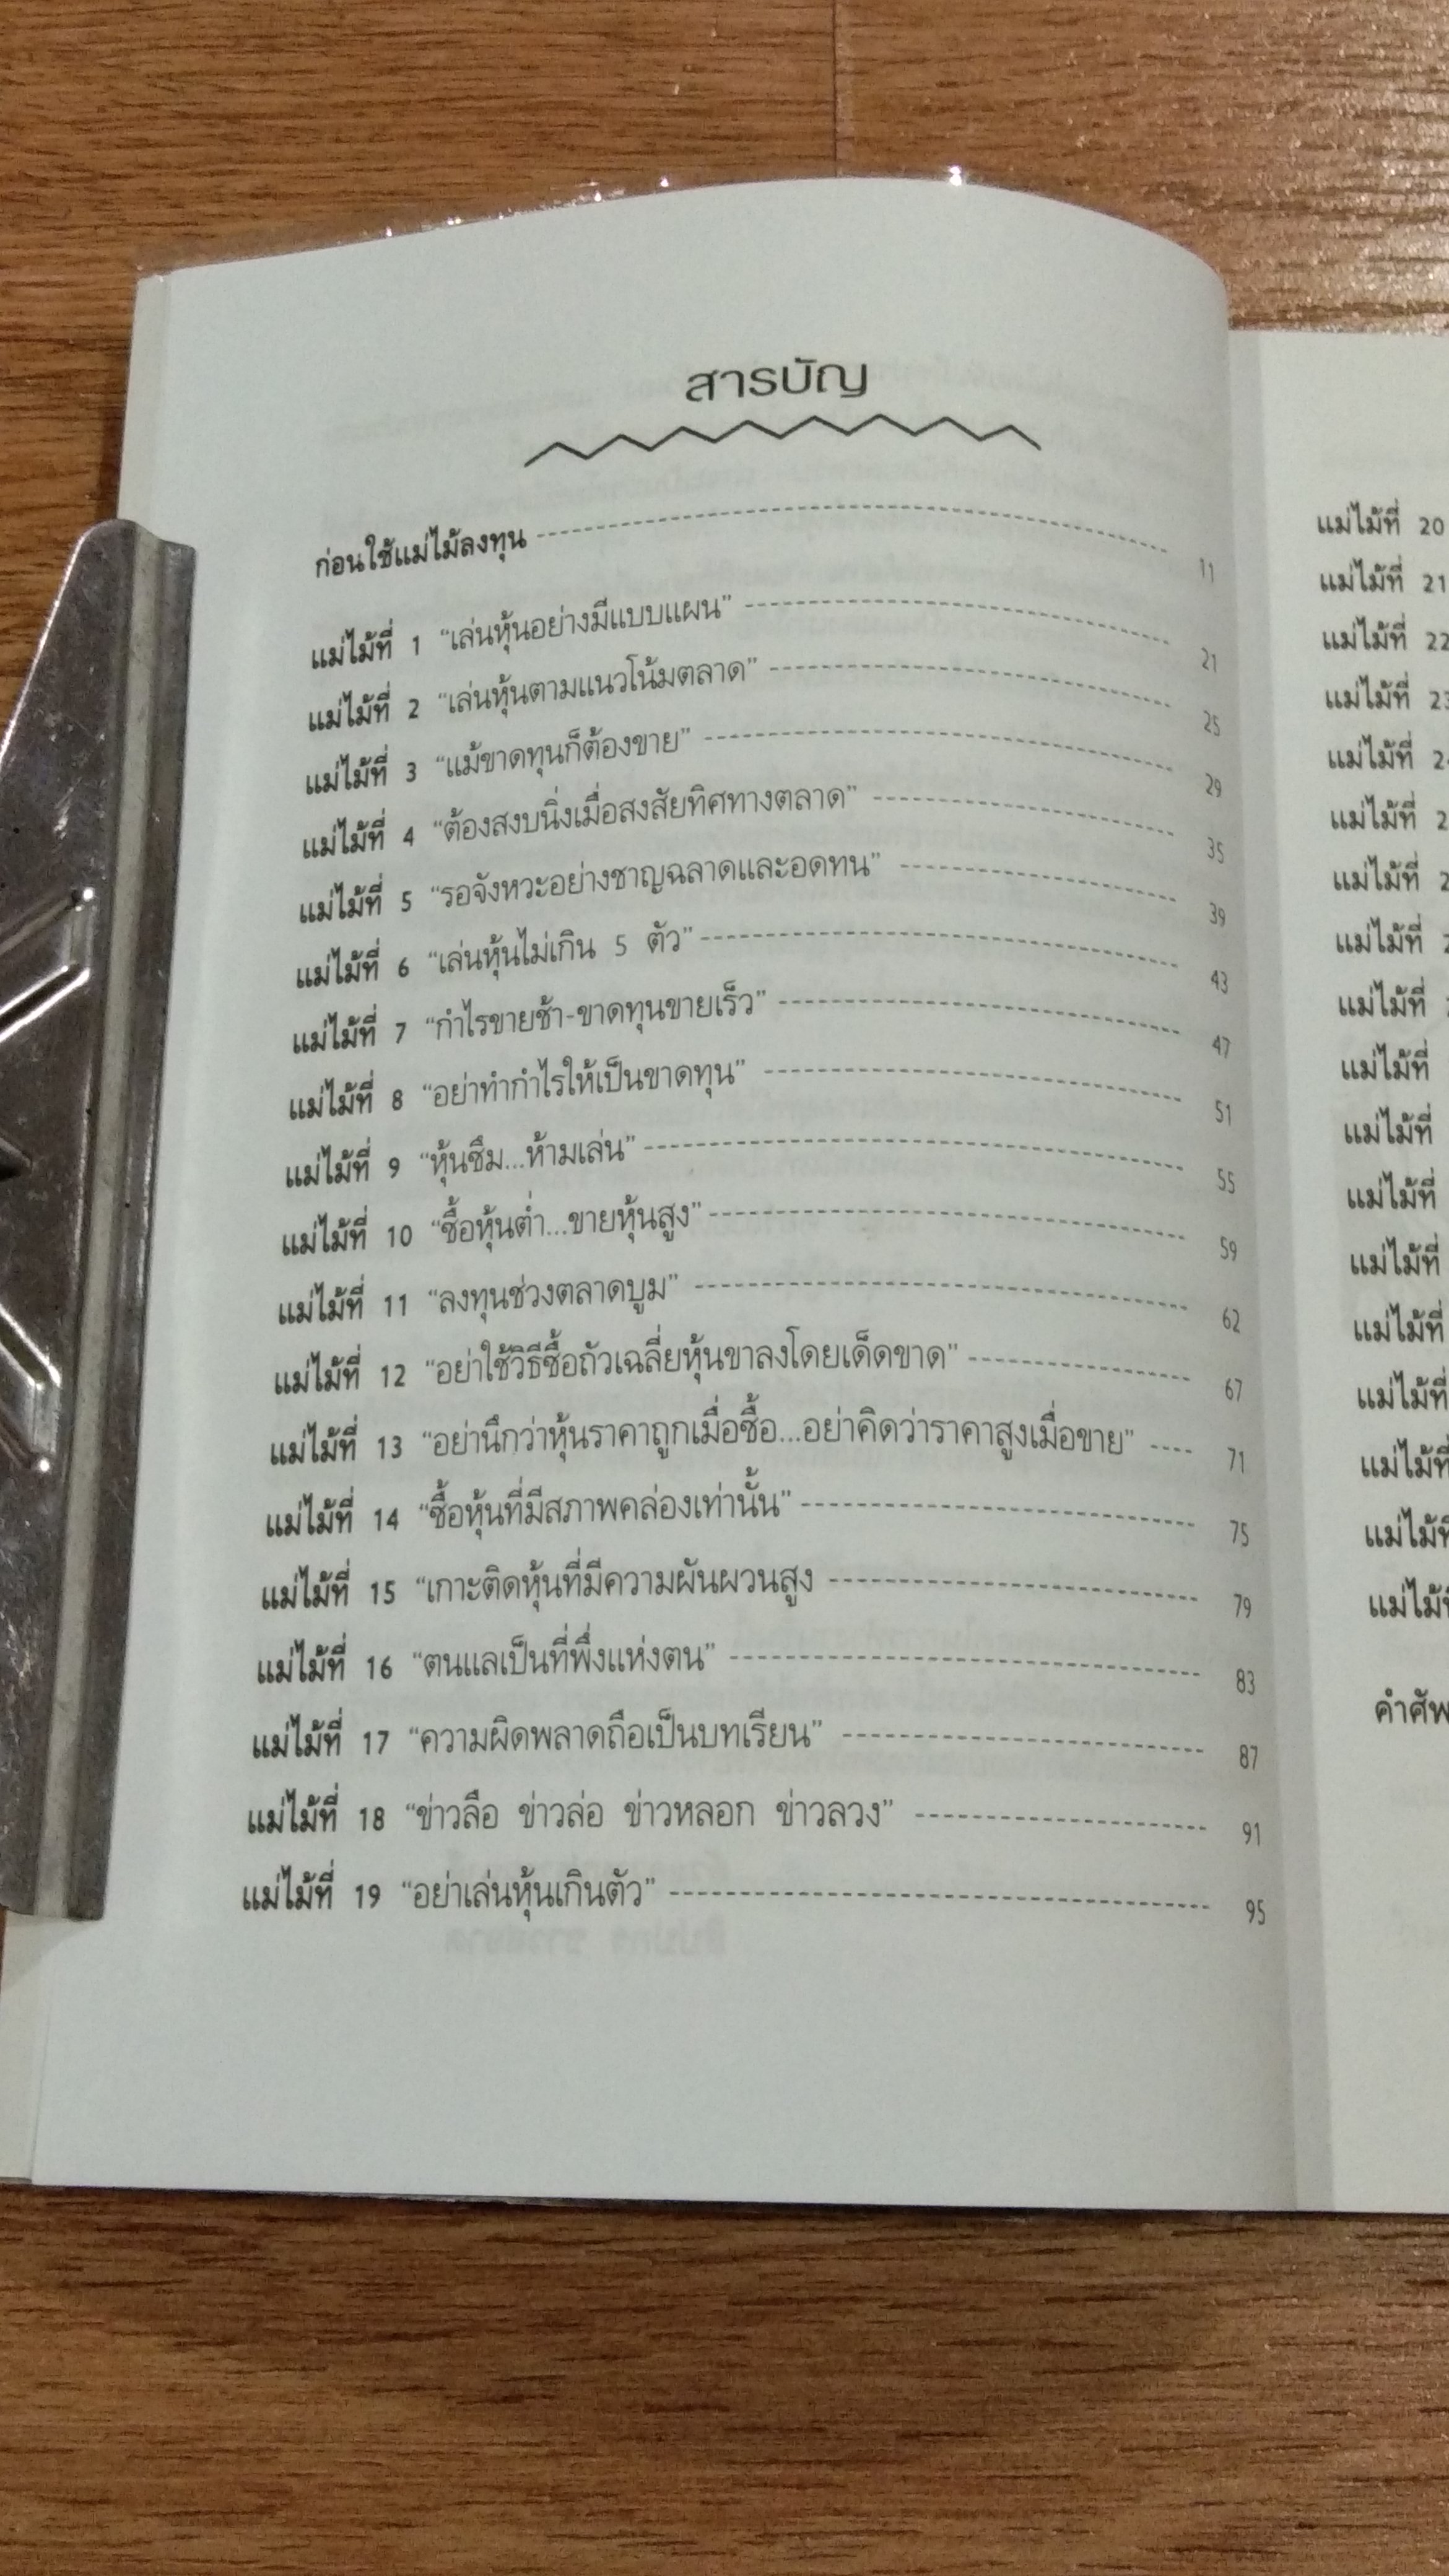 สารบัญ
ก่อนใช้แม่ไม้ลงทุน ---------- 11
แม่ไม้ที่ 1 “เล่นหุ้นอย่างมีแบบแผน” ---------- 21
แม่ไม้ที่ 2 “เล่นหุ้นตามแนวโน้มตลาด” ---------- 25
แม่ไม้ที่ 3 “แม้ขาดทุนก็ต้องขาย” ---------- 29
แม่ไม้ที่ 4 “ต้องสงบนิ่งเมื่อสงสัยทิศทางตลาด” ---------- 35
แม่ไม้ที่ 5 “รอจังหวะอย่างชาญฉลาดและอดทน” ---------- 39
แม่ไม้ที่ 6 “เล่นหุ้นไม่เกิน 5 ตัว” ---------- 43
แม่ไม้ที่ 7 “กำไรขายช้า-ขาดทุนขายเร็ว” ---------- 47
แม่ไม้ที่ 8 “อย่าทำกำไรให้เป็นขาดทุน” ---------- 51
แม่ไม้ที่ 9 “หุ้นซึม...ห้ามเล่น” ---------- 55
แม่ไม้ที่ 10 “ซื้อหุ้นต่ำ...ขายหุ้นสูง” ---------- 59
แม่ไม้ที่ 11 “ลงทุนช่วงตลาดบูม” ---------- 62
แม่ไม้ที่ 12 “อย่าใช้วิธีซื้อถัวเฉลี่ยหุ้นขาลงโดยเด็ดขาด” ---------- 67
แม่ไม้ที่ 13 “อย่านึกว่าหุ้นราคาถูกเมื่อซื้อ...อย่าคิดว่าราคาสูงเมื่อขาย” ---- 71
แม่ไม้ที่ 14 “ซื้อหุ้นที่มีสภาพคล่องเท่านั้น” ---------- 75
แม่ไม้ที่ 15 “เกาะติดหุ้นที่มีความผันผวนสูง ---------- 79
แม่ไม้ที่ 16 “ตนแลเป็นที่พึ่งแห่งตน” ---------- 83
แม่ไม้ที่ 17 “ความผิดพลาดถือเป็นบทเรียน” ---------- 87
แม่ไม้ที่ 18 “ข่าวลือ ข่าวล่อ ข่าวหลอก ข่าวลวง” ---------- 91
แม่ไม้ที่ 19 “อย่าเล่นหุ้นเกินตัว” ---------- 95
แม่ไม้ที่ 20
แม่ไม้ที่ 21
แม่ไม้ที่ 22
แม่ไม้ที่ 23
แม่ไม้ที่
แม่ไม้ที่
แม่ไม้ที่
แม่ไม้ที่
แม่ไม้ที่
แม่ไม้ที่
แม่ไม้ที่
แม่ไม้ที่
แม่ไม้ที่
แม่ไม้ที่
แม่ไม้ที่
แม่ไม้ที่